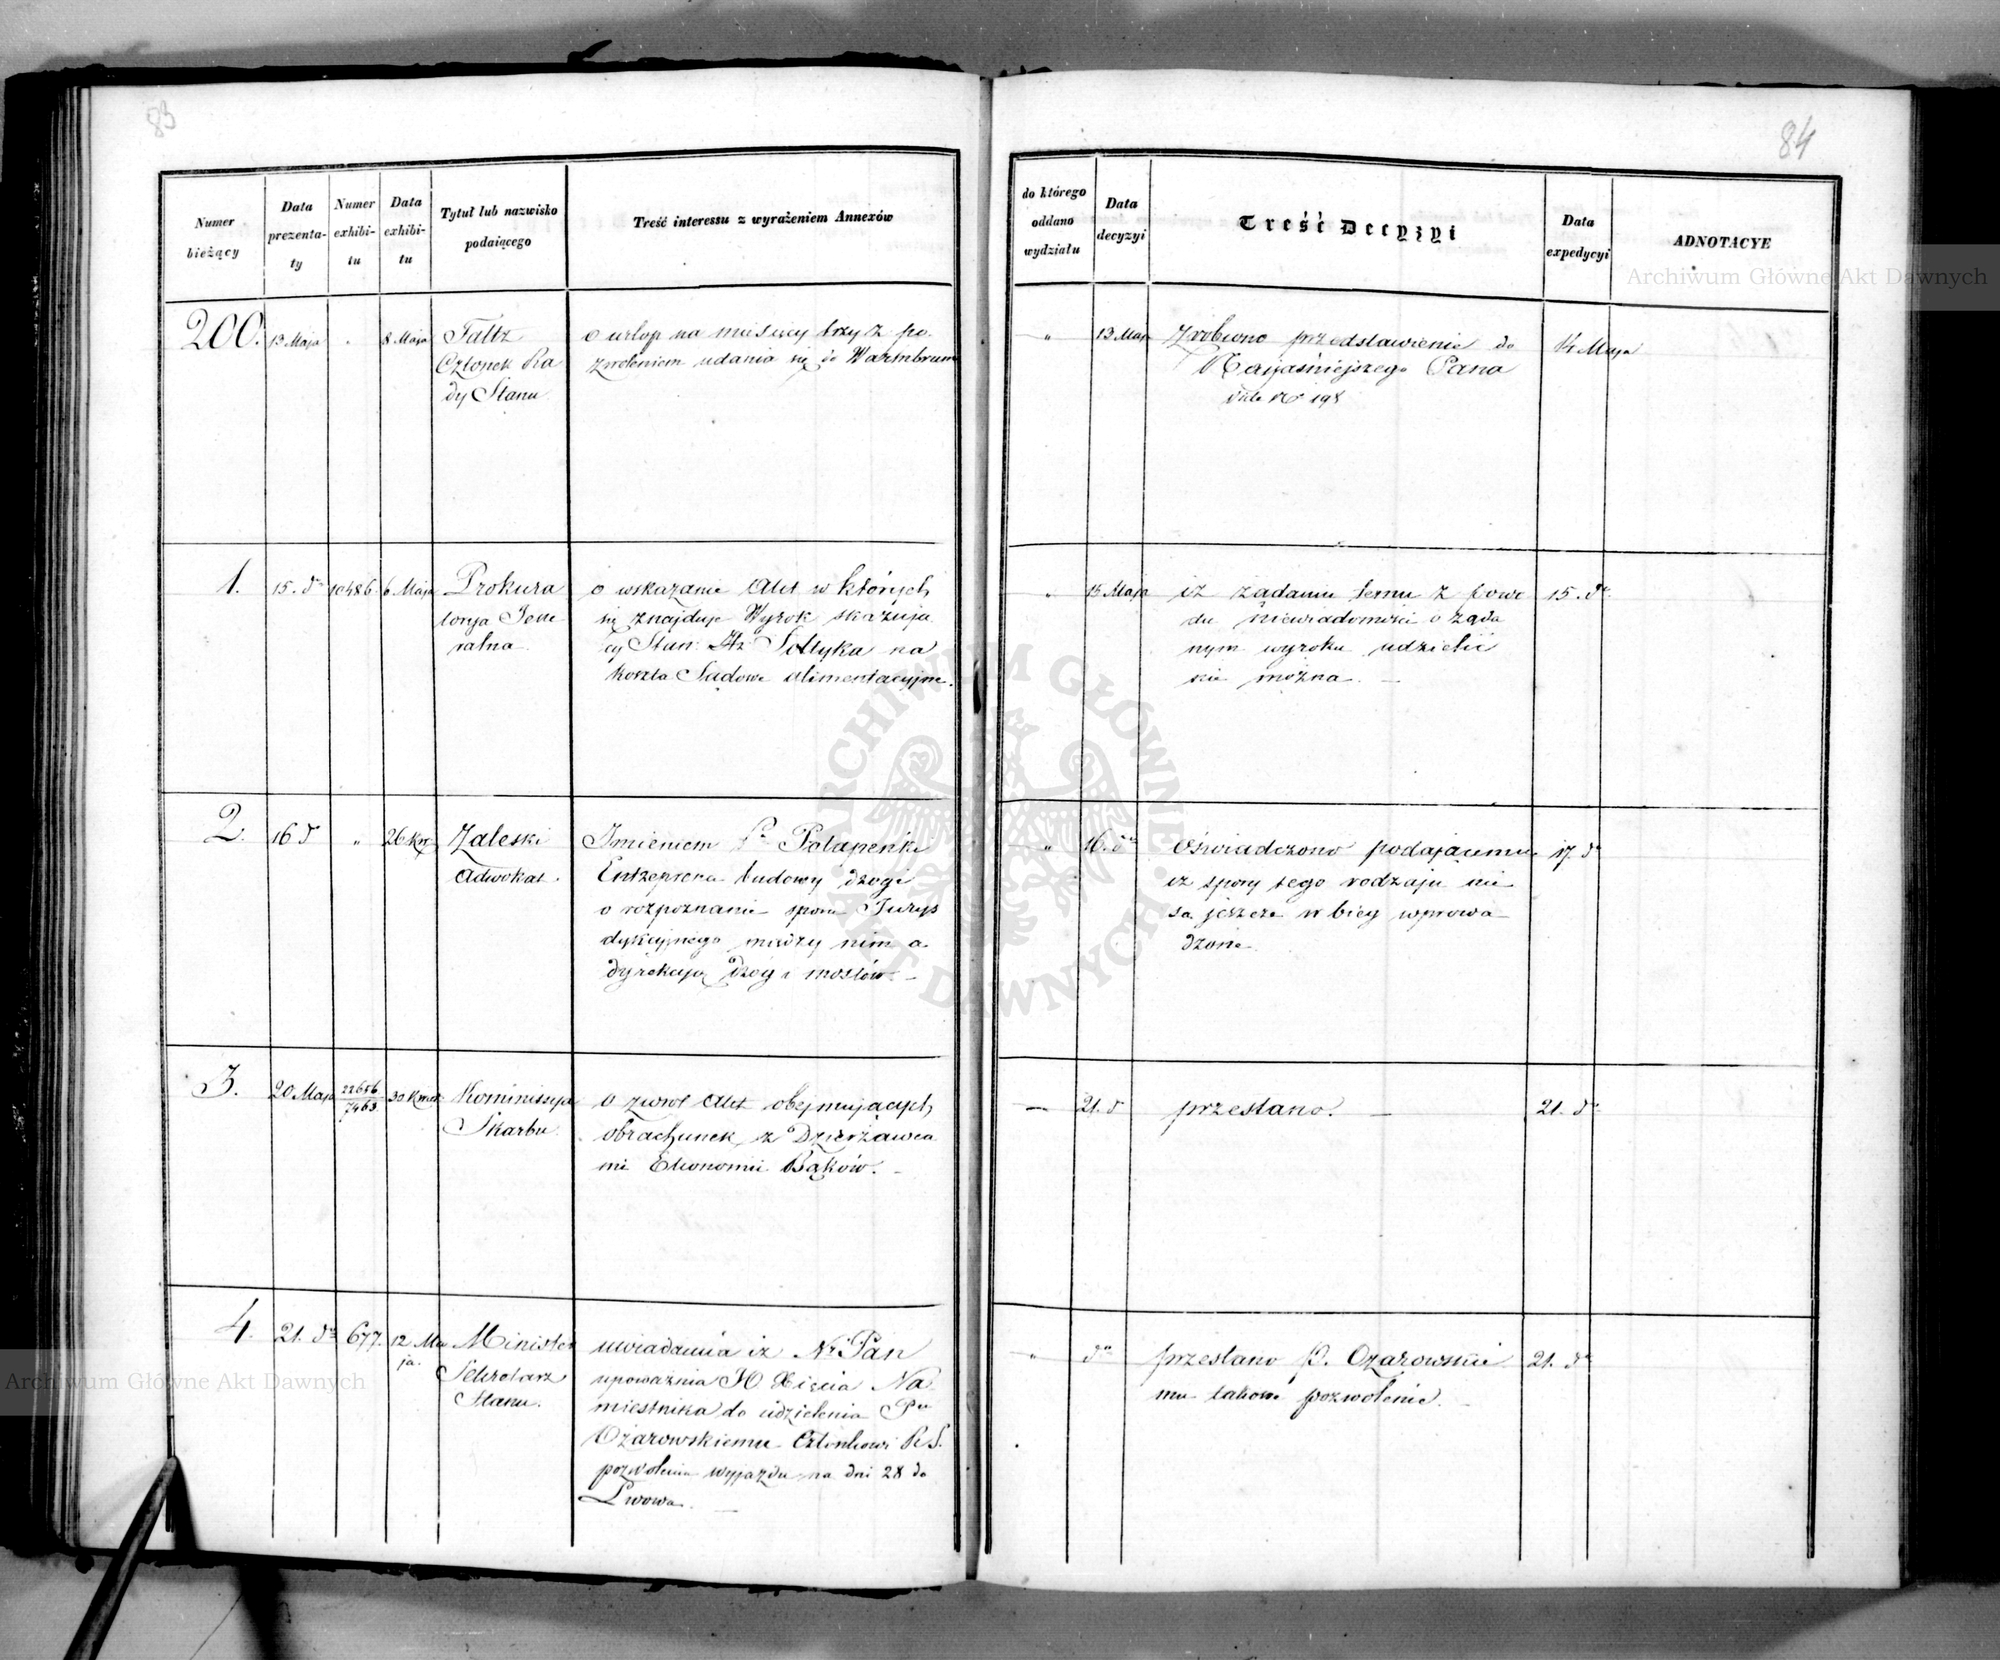 83
84
Numer bieżący
Data prezenta-ty
Numer exhibi-tu
Data exhibi-tu
Tytuł lub nazwisko podaiącego
Treść interessu z wyrażeniem Annexów
do którego oddano wydziału
Data decyzyi
Treść Decyzyi
Data expedycyi
ADNOTACYE
200.
13 Maja
"
8 Maja
Faltz
Członek Ra
dy Stanu
o urlop na miesięcy trzy z po
zwoleniem udania się do Warmbrunn
"
13 Maja
Zrobiono przedstawienie do
Najjaśniejszego Pana
vide No 198
14 Maja
1.
15. do
10486.
6 Maja
Prokura
torya Jene
ralna
o wskazanie Akt w których
się znajduje Wyrok skazują
cy Stan: Hr. Sołtyka na
koszta Sądowe alimentacyjne.
"
15 Maja
iż żądaniu temu z powo
du niewiadomości o żąda
nym wyroku udzielić
nie można. —
15. do
2.
16 do
"
26 Kw.
Zaleski
Adwokat.
Imieniem Po Potapenki
Entreprenera budowy drogi
o rozpoznanie sporu Jurys
dykcyjnego między nim a
dyrekcyą Dróg i mostów. —
"
16. do
Oświadczono podającemu
iż spory tego rodzaju nie
są jeszcze w bieg wprowa
dzone
17. do
3.
20 Maja
22656
7463
30 Kwiet
Kommissya
Skarbu
o zwrot Akt obejmujących
obrachunek z Dzierżawca
mi Ekonomii Bąków. —
—
21. do
przesłano. —
21. do
4.
21. do
677.
12 Ma
ja.
Minister
Sekretarz
Stanu.
uwiadamia iż Nr Pan
upoważnia JO Xięcia Na
miestnika do udzielenia Pu
Ożarowskiemu Członkowi R. S.
pozwolenia wyjazdu na dni 28 do
Lwowa. —
"
do
przesłano P. Ożarowskie
mu takowe pozwolenie.
21. do
Archiwum Główne Akt Dawnych
ARCHIWUM GŁÓWNE AKT DAWNYCH
Archiwum Główne Akt Dawnych